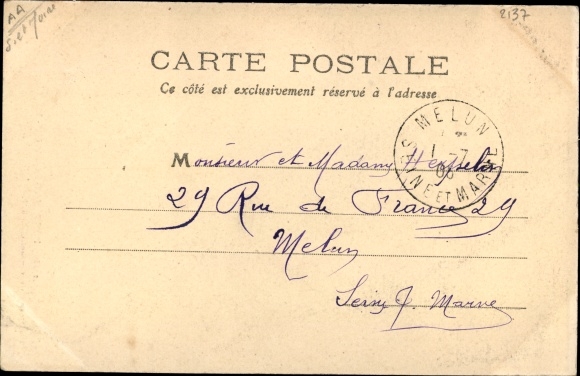 AA
2137
CARTE POSTALE
Ce côté est exclusivement réservé à l'adresse
MELUN
1 -7
SEINE ET MARNE
Monsieur et Madame
29 Rue de France 29
Melun
Seine & Marne